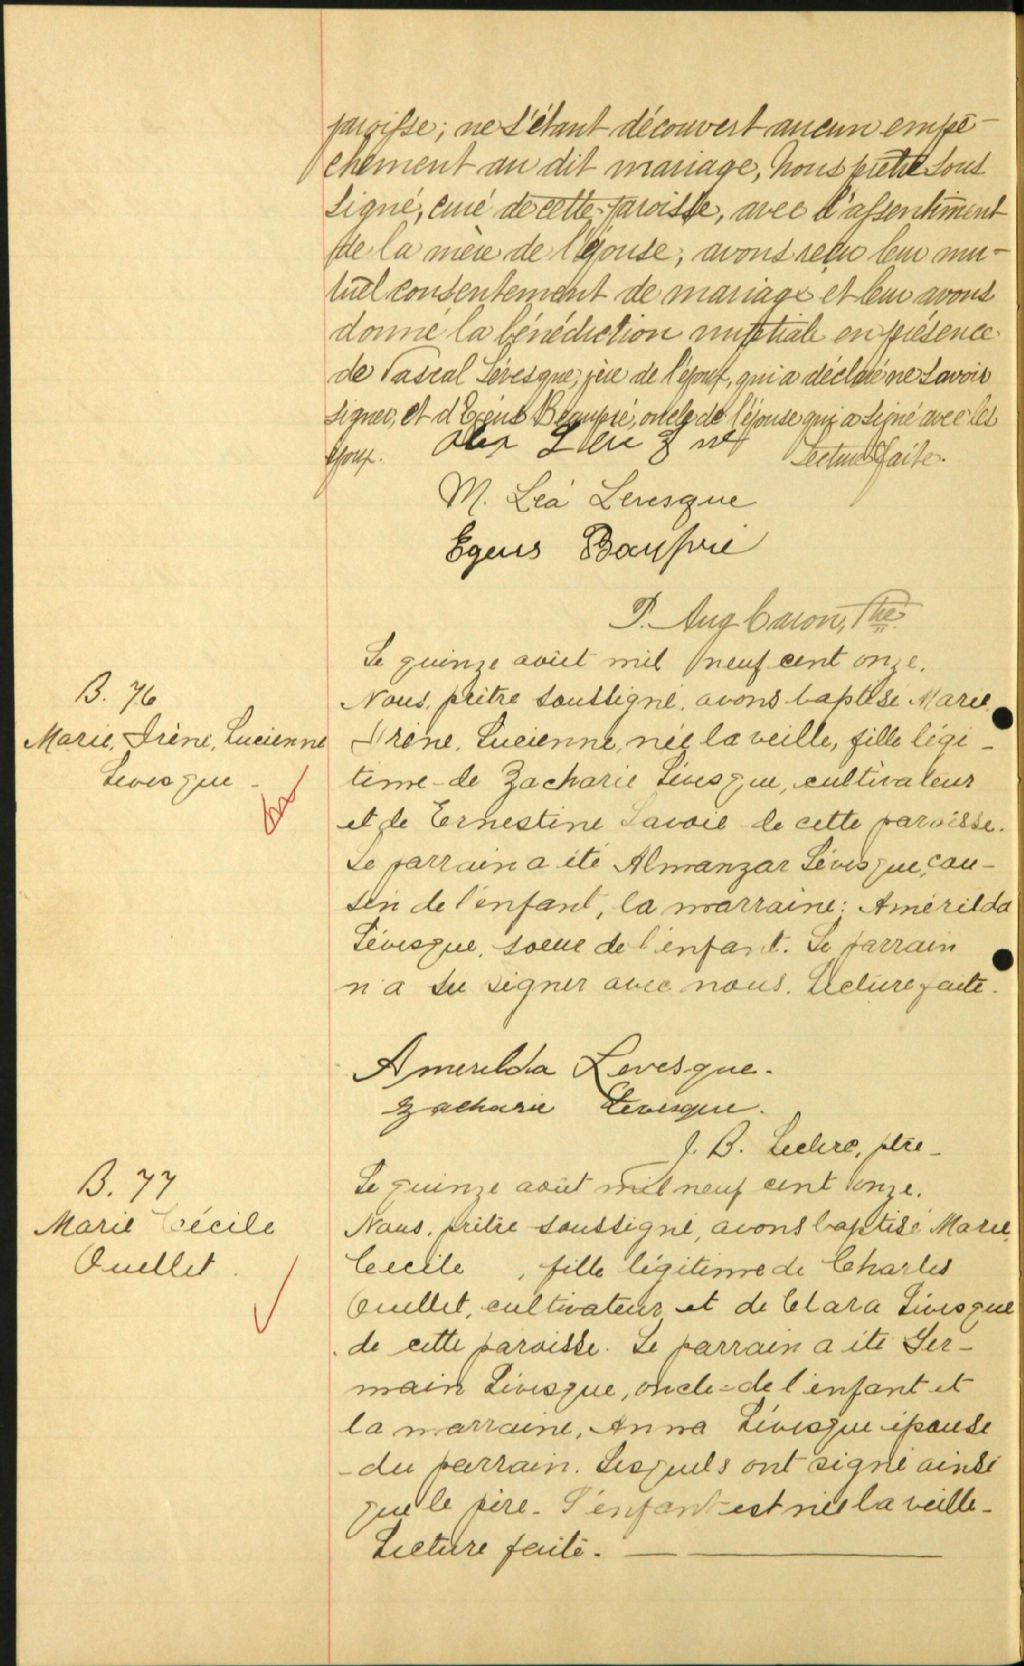 paroisse; ne s'étant découvert aucun empê-
chement au dit mariage, Nous prêtre sous
signé, curé de cette paroisse, avec l'assentiment
de la mère de l'épouse, avons reçu leur mu-
tuel consentement de mariage et leur avons
donné la bénédiction nuptiale en présence
de Pascal Lévesque, père de l'époux, qui a déclaré ne savoir
signer, et d' Beaupré, oncle de l'épouse qui a signé avec les
époux. Lecture faite.
M. Léa Levesque
Egeus Beaupré
P. Aug Caron, Ptre
Le quinze août mil neuf cent onze.
B. 76
Nous, prêtre soussigné, avons baptisé Marie
Marie, Irène, Lucienne
Irène, Lucienne, née la veille, fille légi-
Levesque
time de Zacharie Lévesque, cultivateur
et de Ernestine Savoie de cette paroisse.
Le parrain a été Almanzar Lévesque, cou-
sin de l'enfant, la marraine: Amérilda
Lévesque, soeur de l'enfant. Le parrain
n'a su signer avec nous. Lecture faite.
Amerilda Levesque.
Zacharie Levesque.
J. B. Leclerc, ptre
B. 77
Le quinze août mil neuf cent onze.
Marie Cécile
Nous, prêtre soussigné, avons baptisé Marie,
Ouellet
Cecile, fille légitime de Charles
Ouellet, cultivateur, et de Clara Lévesque
de cette paroisse. Le parrain a été Ger-
main Lévesque, oncle de l'enfant et
la marraine, Anna Lévesque épouse
du parrain. Lesquels ont signé ainsi
que le père. L'enfant est née la veille.
Lecture faite.